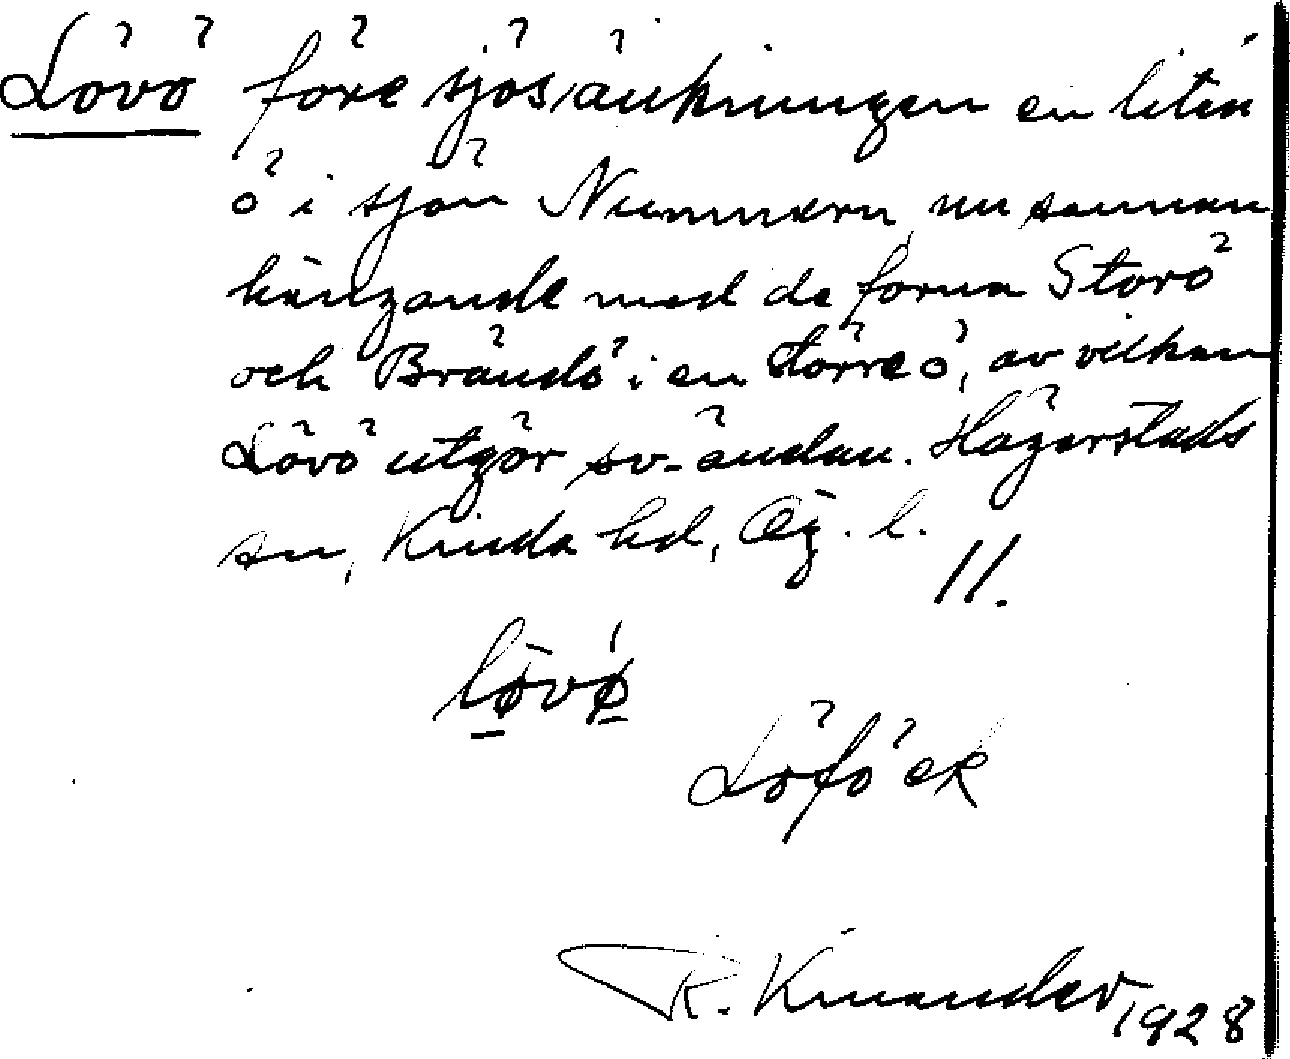 Lövö före sjösänkningen en liten
ö i sjön Nimmern, nu samman
hängande med de forna Storö
och Brändö i en större ö, av vilken
Lövö utgör sv-ändan. Hägerstads
sn, Kinda hd, Ög. l.
11.
löv
Löföck
R. Kinander, 1928